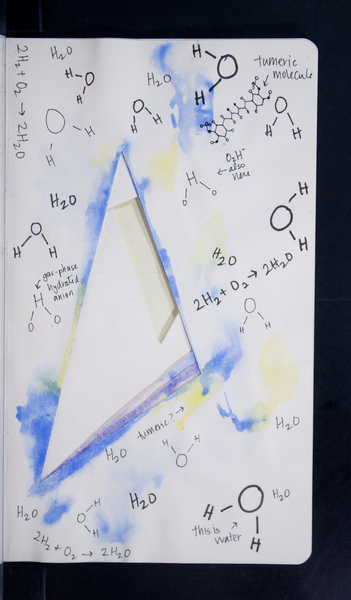 2H₂ + O₂ → 2H₂O
H₂O
H O H
H₂O
H O H
tumeric
molecule
O H H
O H H
O H H
O₂H⁻
← also
here
H O O
H₂O
O H H
O H H
gas-phase
hydrated
anion
H O O
H₂O
2H₂ + O₂ → 2H₂O
O H H
tumeric? →
H₂O
H H O
H₂O
H₂O
H₂O
H O H
H O H
H₂O
this is
water
2H₂ + O₂ → 2H₂O